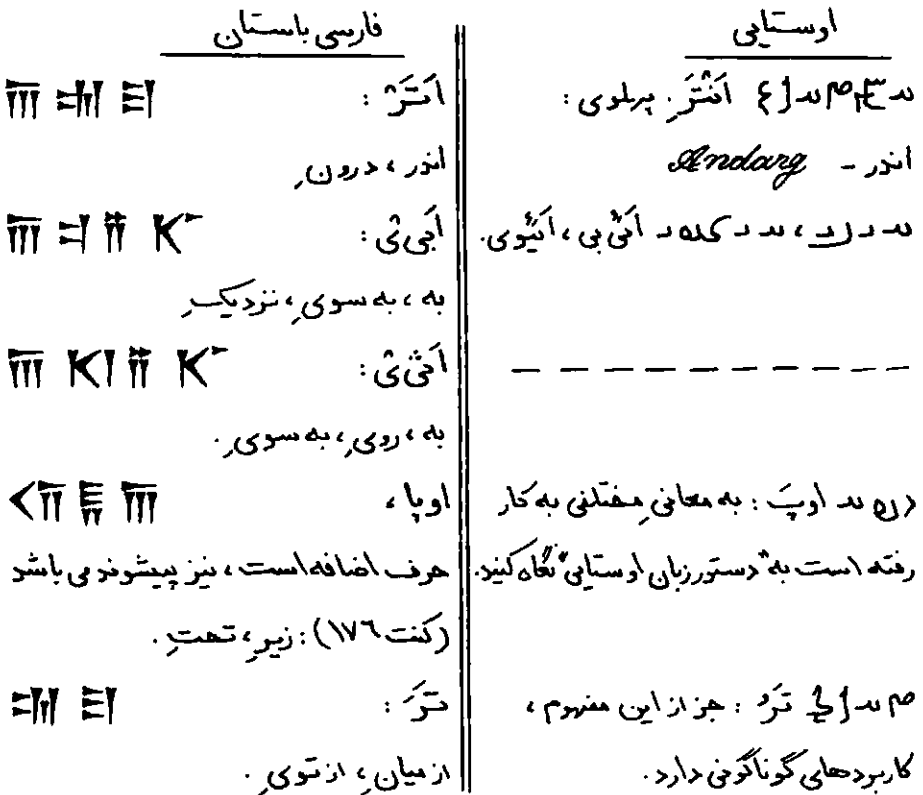 اوستایی
𐬀𐬧𐬙𐬀𐬭𐬆 اَنْتَرِ. پهلوی:
اندر - Andarg
اَئی بی، اَئیوی.
رِه اوپَ: به معانیِ مختلفی به کار
رفته است به "دستور زبان اوستایی" نگاه کنید.
𐬙𐬀𐬭𐬋 تَرُ: جز از این مفهوم،
کاربردهای گوناگونی دارد.
فارسی باستان
اَتَرْ: 𐎠 𐎫 𐎼
اندر، درونِ
اَبی یْ: 𐎠 𐎲 𐎡 𐎹
به، به سویِ، نزدیکِ
اَثی یْ: 𐎠 𐎰 𐎡 𐎹
به، رویِ، به سویِ.
اوپا، 𐎢 𐎱 𐎠
حرف اضافه است، نیز پیشوند می باشد
(کنت ۱۷۶): زیرِ، تحتِ.
تَرَ: 𐎫 𐎼
از میانِ، از تویِ.